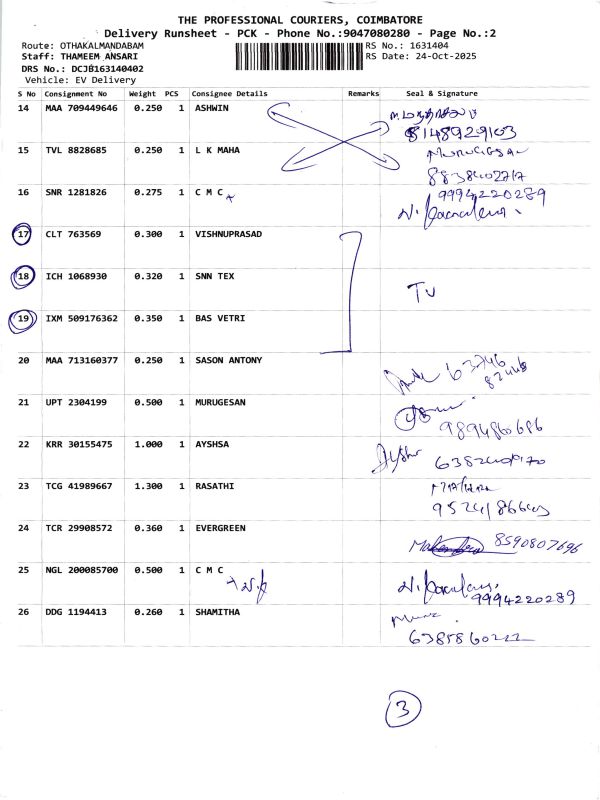 THE PROFESSIONAL COURIERS, COIMBATORE
Delivery Runsheet - PCK - Phone No.:9047080280 - Page No.:2
Route: OTHAKALMANDABAM
RS No.: 1631404
Staff: THAMEEM ANSARI
RS Date: 24-Oct-2025
DRS No.: DCJB163140402
Vehicle: EV Delivery
S No Consignment No Weight PCS Consignee Details Remarks Seal & Signature
14 MAA 709449646 0.250 1 ASHWIN
8148929103
15 TVL 8828685 0.250 1 L K MAHA
16 SNR 1281826 0.275 1 C M C
9994220289
17 CLT 763569 0.300 1 VISHNUPRASAD
18 ICH 1068930 0.320 1 SNN TEX
TV
19 IXM 509176362 0.350 1 BAS VETRI
20 MAA 713160377 0.250 1 SASON ANTONY
21 UPT 2304199 0.500 1 MURUGESAN
9894860686
22 KRR 30155475 1.000 1 AYSHSA
23 TCG 41989667 1.300 1 RASATHI
24 TCR 29908572 0.360 1 EVERGREEN
8590807696
25 NGL 200085700 0.500 1 C M C
9994220289
26 DDG 1194413 0.260 1 SHAMITHA
3